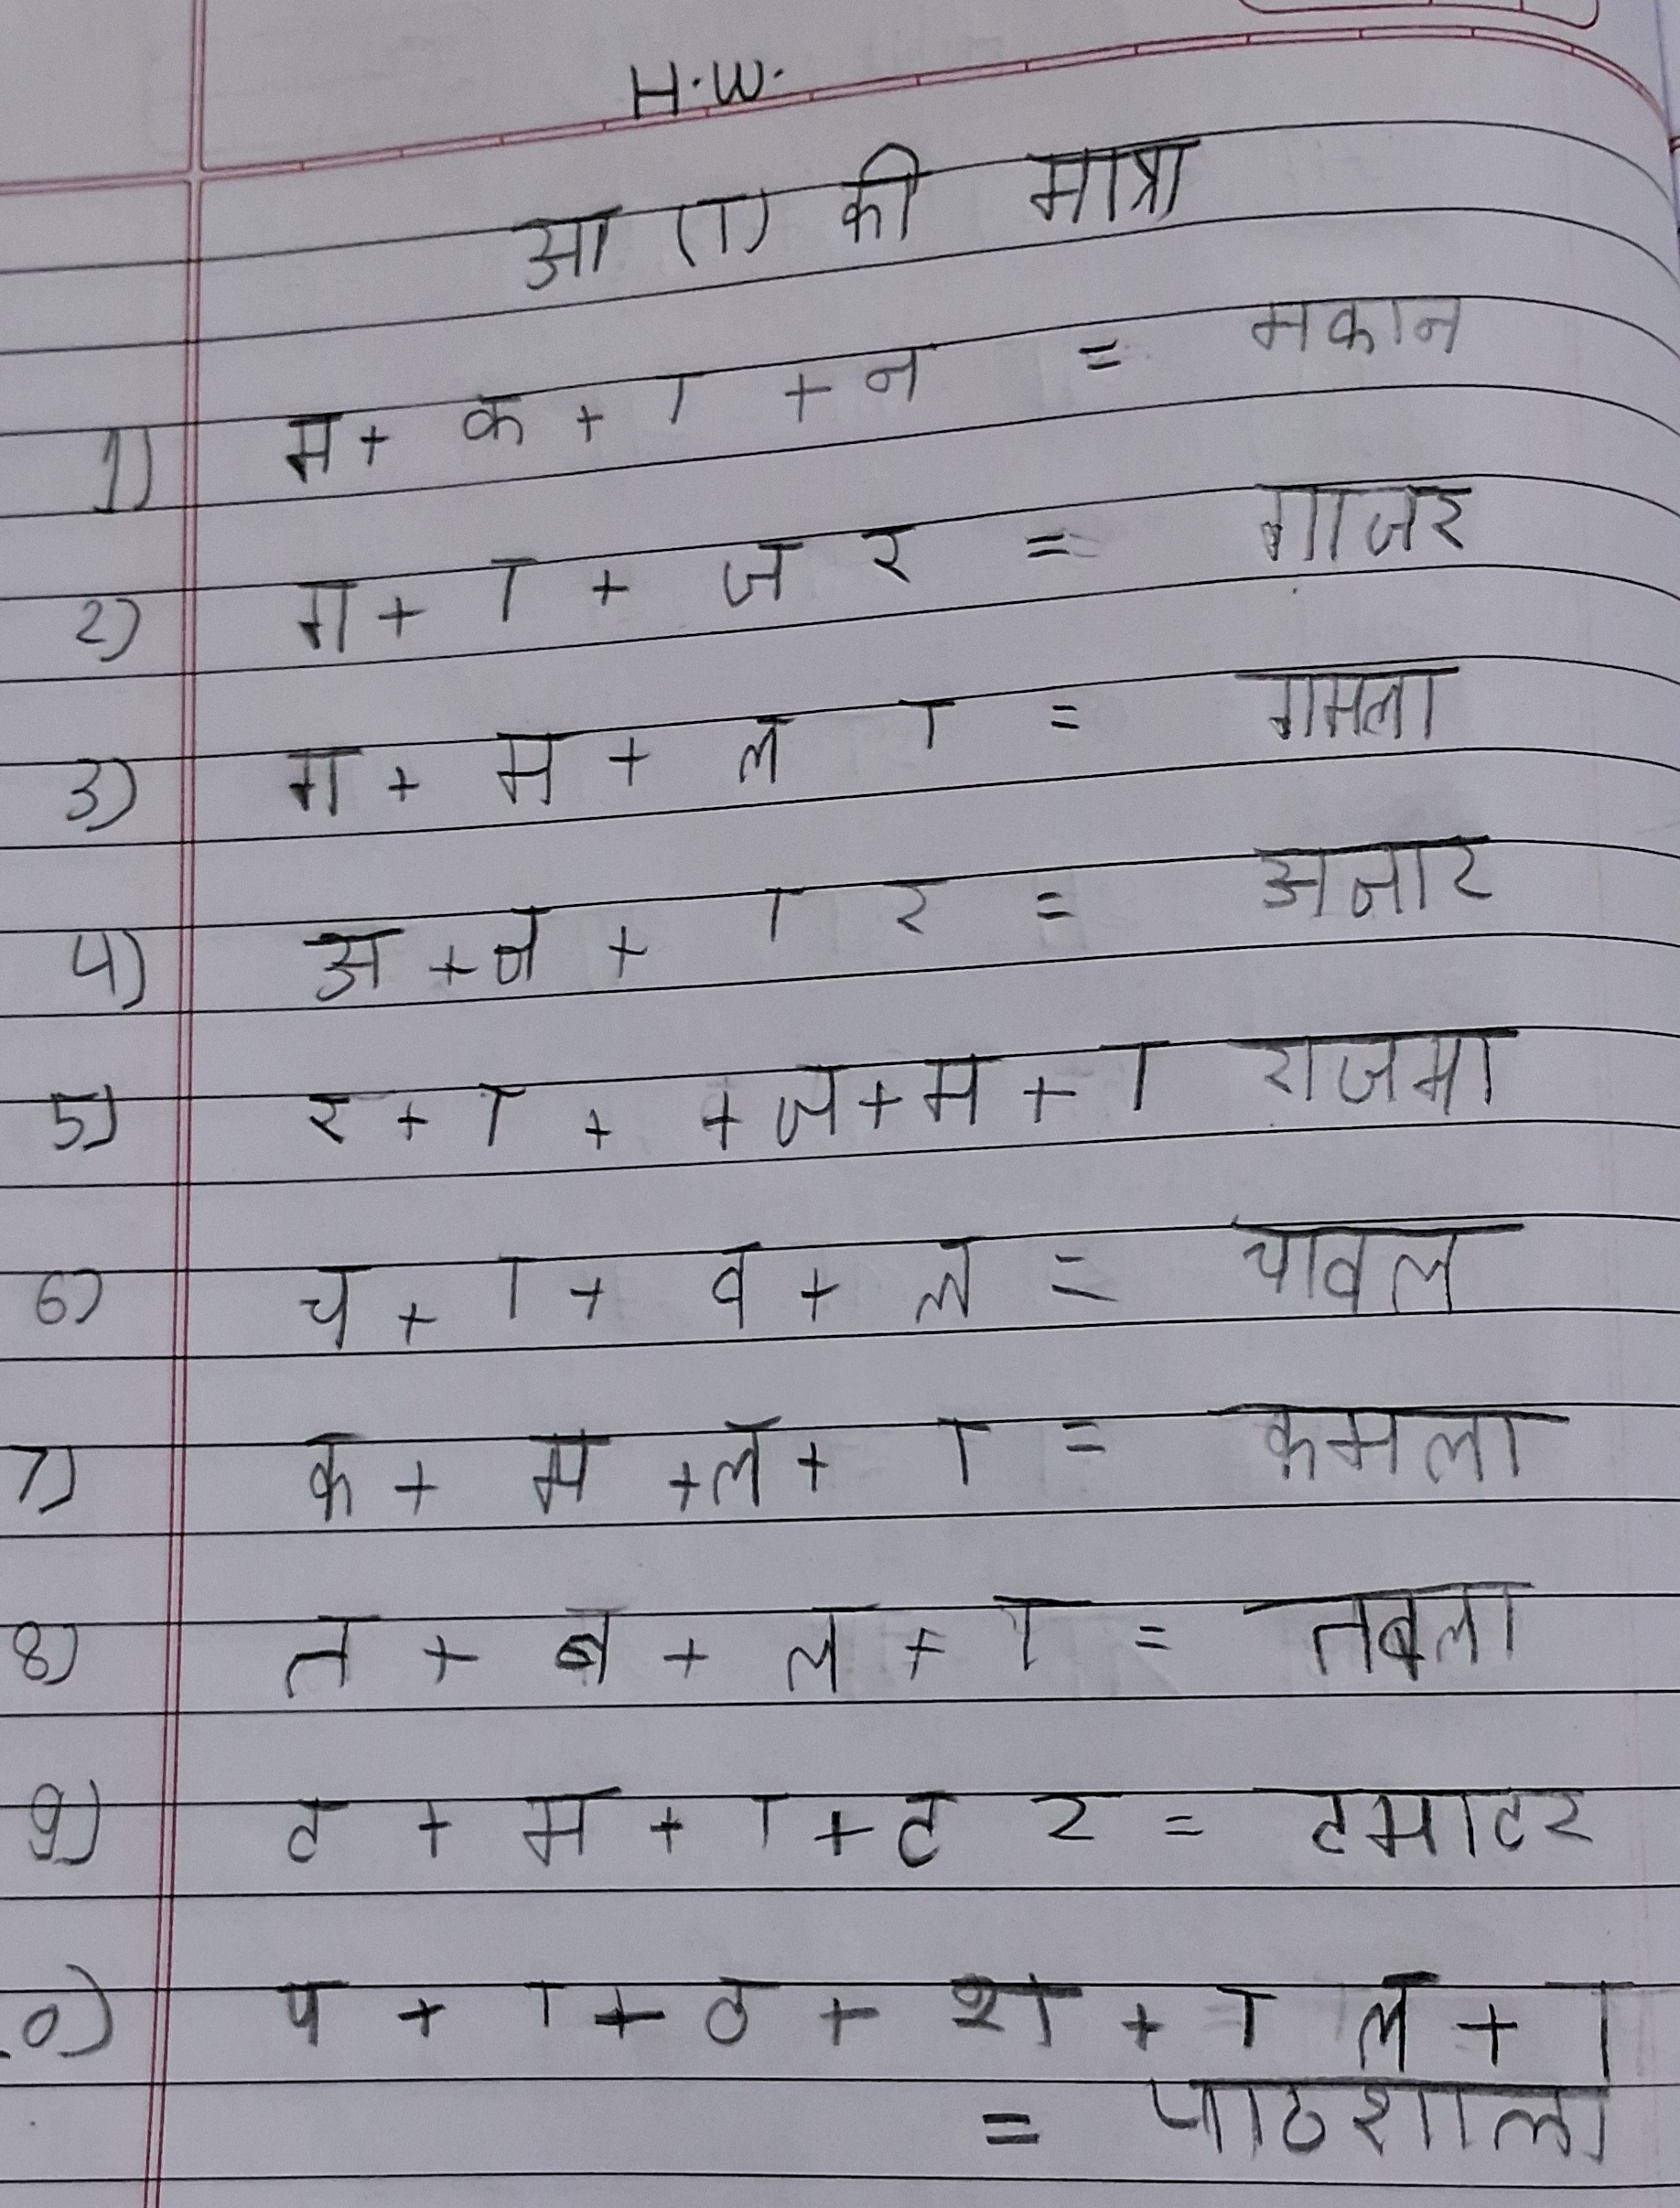 H.W.
आ (ा) की मात्रा
1) म + क + ा + न = मकान
2) ग + ा + ज र = गाजर
3) ग + म + ल ा = गमला
4) अ + न + ा र = अनार
5) र + ा + + ज + म + ा राजमा
6) च + ा + व + ल = चावल
7) क + म + ल + ा = कमला
8) त + ब + ल + ा = तबला
9) ट + म + ा + ट र = टमाटर
0) प + ा + ठ + श + ा ल + ा
= पाठशाला